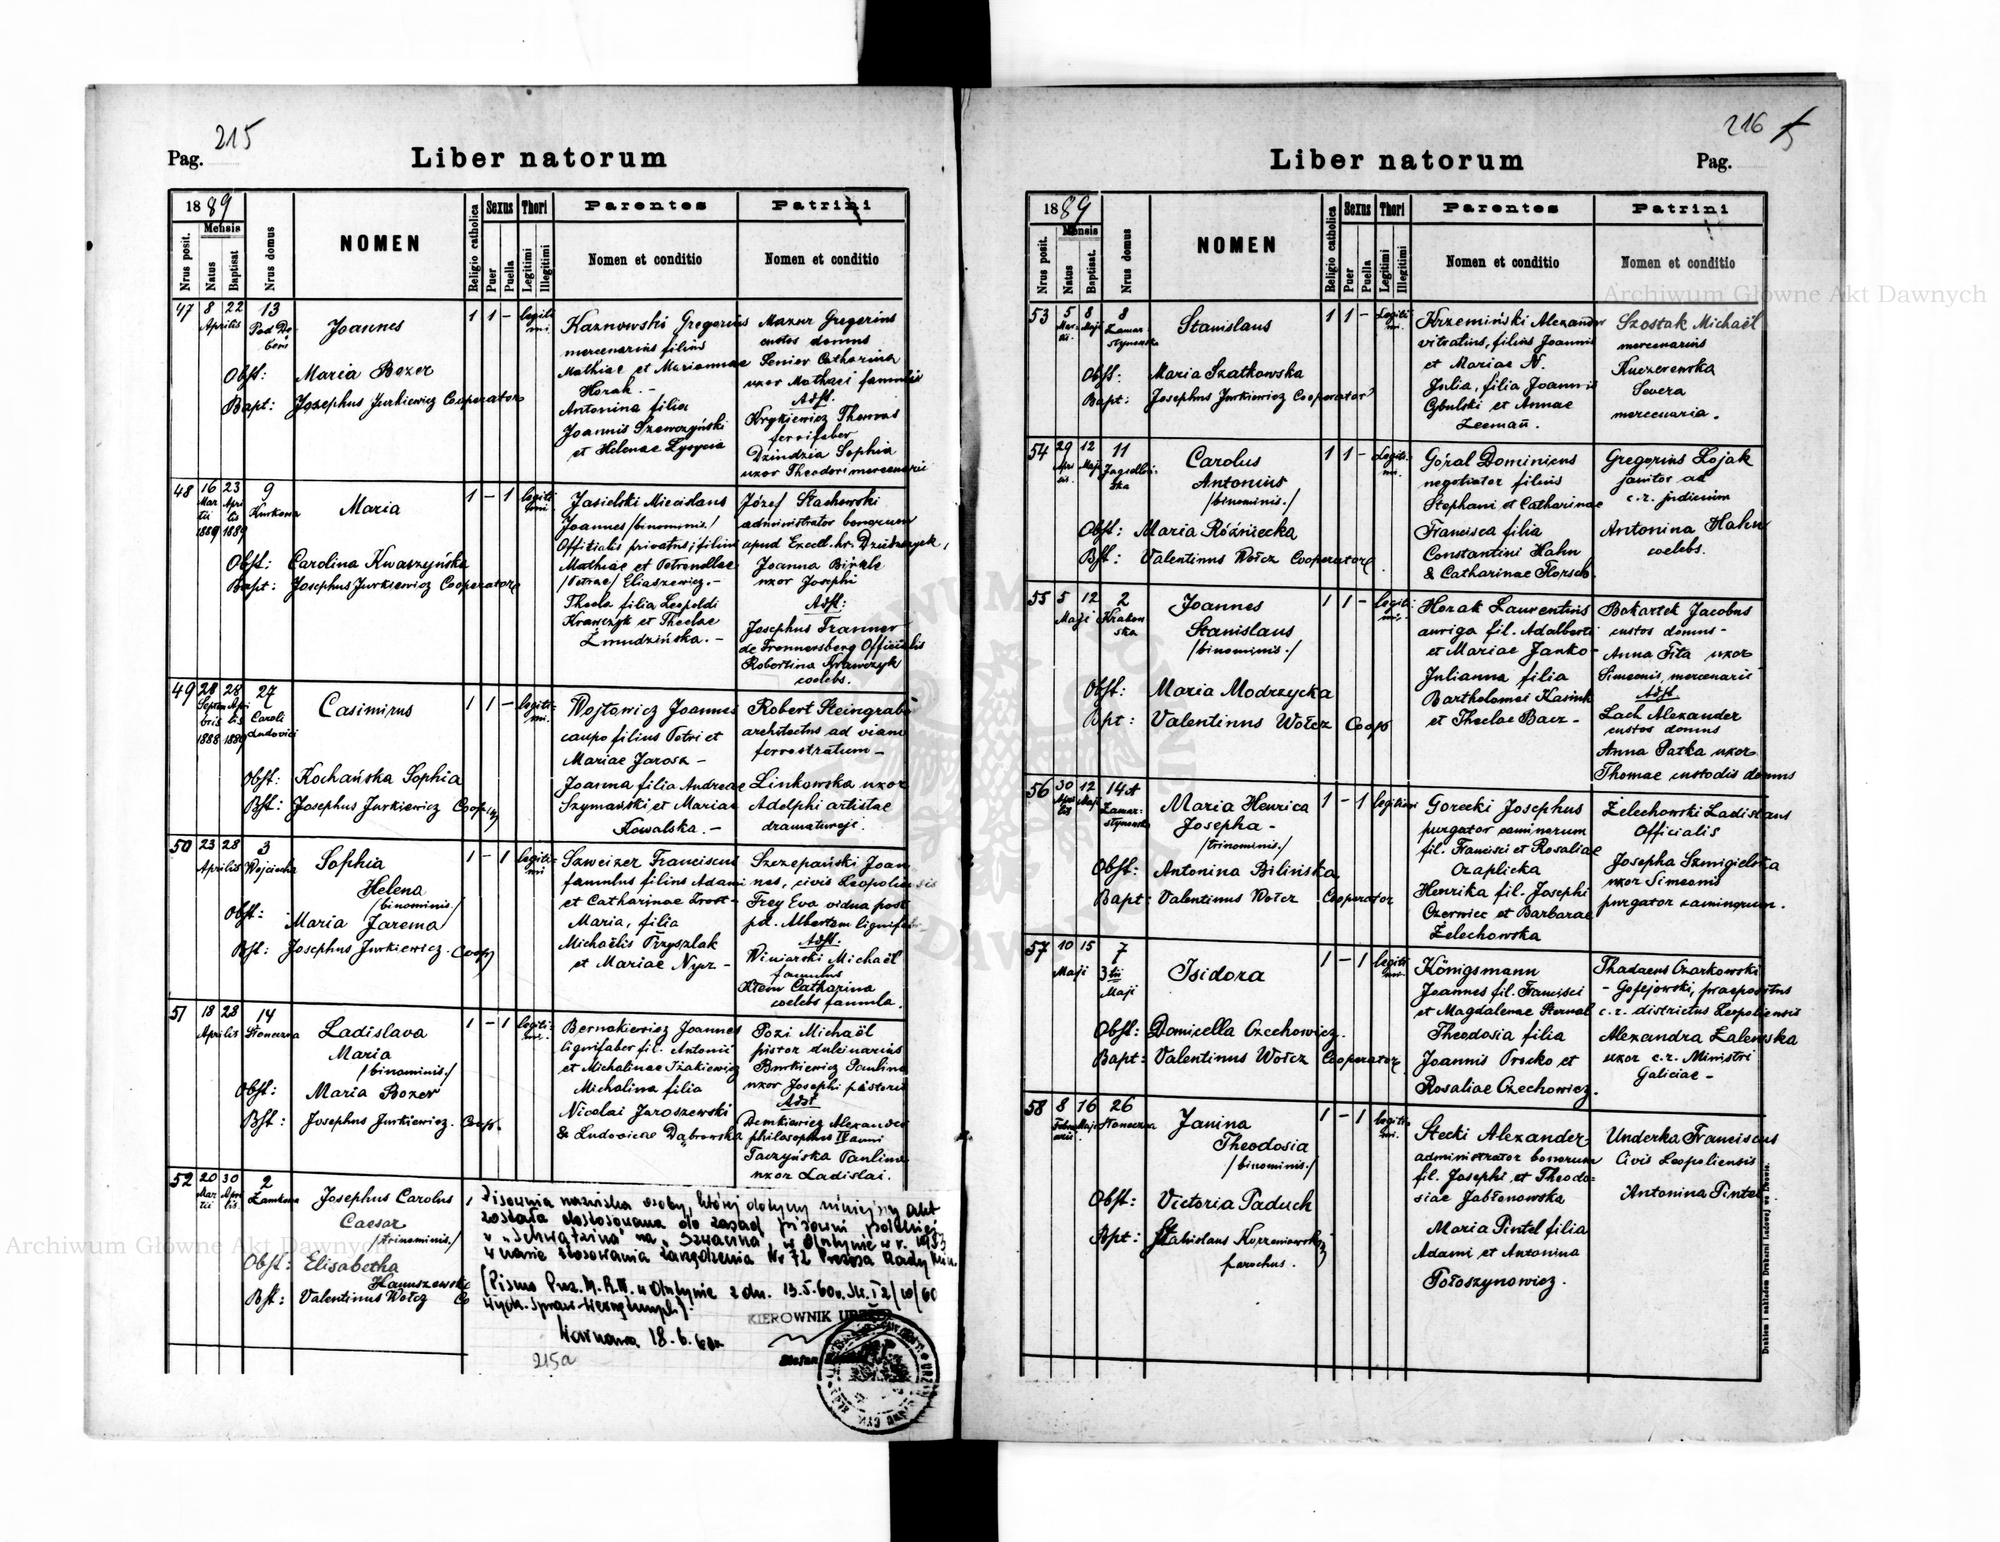 215
Pag.
Liber natorum
1889
Mensis
Nrus posit.
Natus
Baptisat
Nrus domus
NOMEN
Religio catholica
Sexus
Puer
Puella
Thori
Legitimi
Illegitimi
Parentes
Nomen et conditio
Patrini
Nomen et conditio
47 8 22 13
Aprilis
Joannes
1 1 - legiti
mi.
Obst: Maria Bozer
Bapt: Josephus Jurkiewicz Cooperator
Kaznowski Gregorius
mercenarius filius
Mathiae et Mariannae
Horak.-
Antonina filia
Joannis Szewczyński
et Helenae
Mazur Gregorius
custos domus
Senior Catharina
uxor Mathaei famuli
Adst.
Krykiewicz Thomas
ferrifaber
Dzindzia Sophia
uxor Theodori mercenarii
48 16 23 9
Martii Aprilis Kurkowa
1889 1889
Maria
1 - 1 legiti
mi.
Obst: Carolina Kwaszyńska
Bapt: Josephus Jurkiewicz Cooperator
Jasielski Miecislaus
Joannes /binominis./
Officialis privatus; filius
Mathiae et Petronellae
/Petrae/ Eliaszewicz.-
Thecla filia Leopoldi
Krawczyk et Theclae
Żmudzińska.-
Józef Stachowski
administrator bonorum
apud Excell. hr. Dzieduszyck,
Joanna Birkle
uxor Josephi
Adst:
Josephus Tranner
de Tronnersberg Officialis
Robertina Krawczyk
coelebs.
49 28 28 27
Septembris Aprilis Caroli
1888 1889 Ludovici
Casimirus
1 1 - legiti
mi.
Obst: Kochańska Sophia
Bst: Josephus Jurkiewicz Coop
Wojtowicz Joannes
caupo filius Petri et
Mariae Jarosz -
Joanna filia Andreae
Szymański et Mariae
Kowalska.-
Robert Steingrab
architectus ad viam
ferrostratum -
Linkowska uxor
Adolphi artistae
dramaturgi.
50 23 28 3
Aprilis Wojciecha
Sophia
Helena
/binominis./
1 - 1 legiti
mi
Obst: Maria Jarema
Bst: Josephus Jurkiewicz. Coop
Szweizer Franciscus
famulus filius Adami
et Catharinae Drost -
Maria, filia
Michaëlis Przyszlak
et Mariae Nypr -
Szczepański Joan
nes, civis Leopoliensis
Frey Eva vidua post
pd. Albertum lignifab
Adst.
Winiarski Michaël
famulus
Klem Catharina
coelebs famula.
51 18 28 14
Aprilis Słoneczna
Ladislava
Maria
/binominis./
1 - 1 legiti
mi.
Obst: Maria Bozer
Bst: Josephus Jurkiewicz. Coop.
Bernakiewicz Joannes
lignifaber fil. Antonii
et Michalinae Izakiewicz
Michalina filia
Nicolai Jaroszewski
& Ludovicae Dąbrowska
Pozi Michaël
pistor dulciarius
Burkiewicz Paulina
uxor Josephi pistoris
Adst
Demkiewicz Alexander
philosophus IV anni
Taczyńska Paulina
uxor Ladislai.
52 20 30 2
Martii Aprilis Zamkowa
Josephus Carolus
Caesar
/trinominis./
1
Obst: Elisabetha
Hanuszewska
Bst: Valentinus Wołcz Co
Pisownia nazwiska osoby, której dotyczy niniejszy akt
została dostosowana do zasad pisowni polskiej
z „Schwarzina" na „Szwarcina" w Olsztynie w r. 1953
w trakcie stosowania zarządzenia Nr 72 Prezesa Rady Min
(Pismo Prez. M.R.N. w Olsztynie z dn. 13.5.60r. Nr. I 2/10/60
Warszawa 18.6.60r.
KIEROWNIK URZĘDU
215a
216
Liber natorum
Pag.
1889
Mensis
Nrus posit.
Natus
Baptisat.
Nrus domus
NOMEN
Religio catholica
Sexus
Puer
Puella
Thori
Legitimi
Illegitimi
Parentes
Nomen et conditio
Patrini
Nomen et conditio
53 5 8 8
Martii Maji Zamarstynowska
Stanislaus
1 1 - Legiti
mi.
Obst: Maria Szatkowska
Bapt: Josephus Jurkiewicz Cooperator
Krzemiński Alexander
vitratius, filius Joannis
et Mariae N.
Julia, filia Joannis
Cybulski et Annae
Leeman.
Szostak Michaël
mercenarius
Kuczerewska
Severa
mercenaria.
54 29 12 11
Aprilis Maji Jagiellońska
Carolus
Antonius
/binominis./
1 1 - Legiti
mi.
Obst: Maria Różniecka
Bst: Valentinus Wołcz Cooperator
Góral Dominicus
negotiator filius
Stephani et Catharinae
Francisca filia
Constantini Hahn
& Catharinae Horsch.
Gregorius Łojak
janitor ad
c.r. judicium
Antonina Hahn
coelebs.
55 5 12 2
Maji Krakowska
Joannes
Stanislaus
/binominis./
1 1 - legiti
mi.
Obst: Maria Modrzycka
Bpt: Valentinus Wołcz Coop
Horak Laurentius
auriga fil. Adalberti
et Mariae Janko -
Julianna filia
Bartholomei Kasiuk
et Theclae Bacz -
Bokartek Jacobus
custos domus -
Anna Fita uxor
Simeonis, mercenarii
Adst
Lach Alexander
custos domus
Anna Patka uxor
Thomae custodis domus
56 30 12 14A
Aprilis Maji Zamarstynowska
Maria Henrica
Josepha -
/trinominis./
1 - 1 legitimi
Obst: Antonina Bilińska,
Bapt: Valentinus Wołcz Cooperator
Gorecki Josephus
purgator caminorum
fil. Francisci et Rosaliae
Czaplicka
Henrika fil. Josephi
Czerwiec et Barbarae
Żelechowska
Żelechowski Ladislaus
Officialis
Josepha Szmigielska
uxor Simeonis
purgator caminorum.
57 10 15 7
Maji 3tii
Maji
Isidora
1 - 1 legiti
mi.
Obst: Domicella Czechowicz.
Bapt: Valentinus Wołcz Cooperator
Königsmann
Joannes fil. Francisci
et Magdalenae Sternal
Theodosia filia
Joannis Procko et
Rosaliae Czechowicz.
Thadaeus Czarkowski
- Gołejowski, praepositus
c.r. districtus Leopoliensis
Alexandra Zalewska
uxor c.r. Ministri
Galiciae -
58 8 16 26
Februarii Maji Słoneczna
Janina
Theodosia
/binominis./
1 - 1 legiti
mi.
Obst: Victoria Paduch
Bpt: Stanislaus Korzeniowski
parochus.
Stecki Alexander
administrator bonorum
fil. Josephi et Theodo-
siae Jabłonowska
Maria Pintel filia
Adami et Antonina
Tołoszynowicz.
Underka Franciscus
Civis Leopoliensis
Antonina Pintel
Drukiem i nakładem Drukarni Ludowej we Lwowie.
Archiwum Główne Akt Dawnych
Archiwum Główne Akt Dawnych